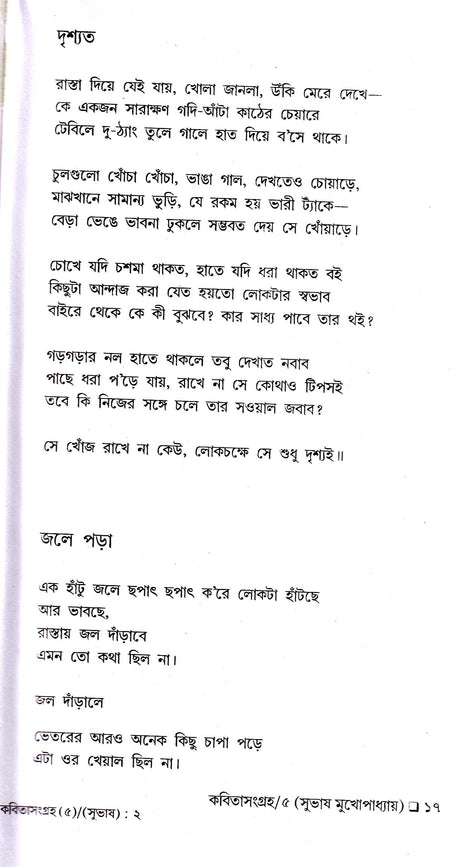 দৃশ্যত
রাস্তা দিয়ে যেই যায়, খোলা জানলা, উঁকি মেরে দেখে—
কে একজন সারাক্ষণ গদি-আঁটা কাঠের চেয়ারে
টেবিলে দু-ঠ্যাং তুলে গালে হাত দিয়ে ব'সে থাকে।
চুলগুলো খোঁচা খোঁচা, ভাঙা গাল, দেখতেও চোয়াড়ে,
মাঝখানে সামান্য ভুড়ি, যে রকম হয় ভারী ট্যাঁকে—
বেড়া ভেঙে ভাবনা ঢুকলে সম্ভবত দেয় সে খোঁয়াড়ে।
চোখে যদি চশমা থাকত, হাতে যদি ধরা থাকত বই
কিছুটা আন্দাজ করা যেত হয়তো লোকটার স্বভাব
বাইরে থেকে কে কী বুঝবে? কার সাধ্য পাবে তার থই?
গড়গড়ার নল হাতে থাকলে তবু দেখাত নবাব
পাছে ধরা প'ড়ে যায়, রাখে না সে কোথাও টিপসই
তবে কি নিজের সঙ্গে চলে তার সওয়াল জবাব?
সে খোঁজ রাখে না কেউ, লোকচক্ষে সে শুধু দৃশ্যই॥
জলে পড়া
এক হাঁটু জলে ছপাৎ ছপাৎ ক'রে লোকটা হাঁটছে
আর ভাবছে,
রাস্তায় জল দাঁড়াবে
এমন তো কথা ছিল না।
জল দাঁড়ালে
ভেতরের আরও অনেক কিছু চাপা পড়ে
এটা ওর খেয়াল ছিল না।
কবিতাসংগ্রহ/৫ (সুভাষ মুখোপাধ্যায়) ❑ ১৭
কবিতাসংগ্রহ (৫)/(সুভাষ) : ২